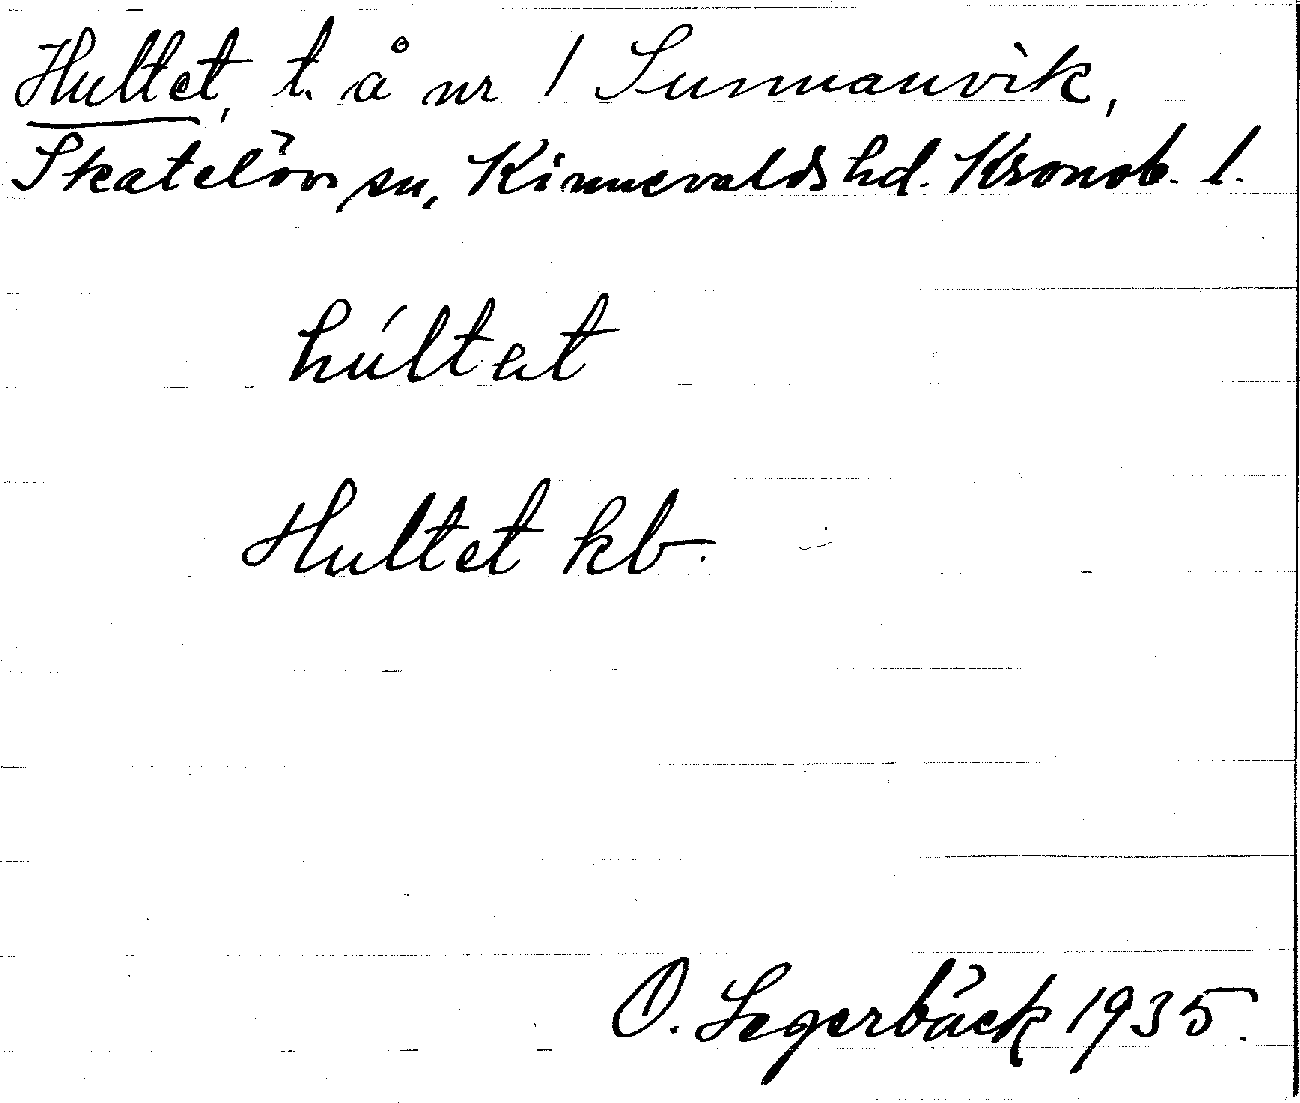 Hultet, t. å nr 1 Sunnanvik,
Skatelövs sn, Kinnevalds hd. Kronob. l.
húltat
Hultet kb.
O. Segerbäck 1935.